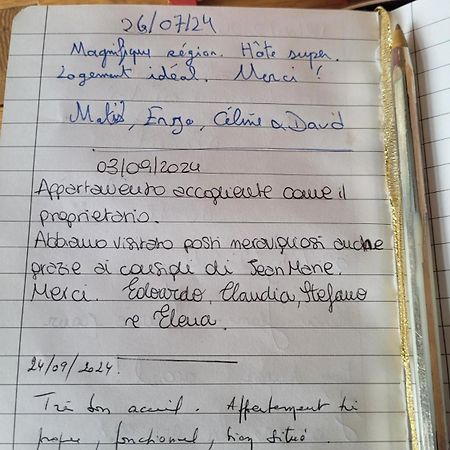 26/07/24
Magnifique région. Hôte super.
Logement idéal. Merci !
Enzo, Céline & David
03/09/2024
Appartamento accogliente come il
proprietario.
Abbiamo visitato posti meravigliosi anche
grazie ai consigli di Jean Marie.
Merci. Edoardo, Claudia, Stefano
e Elena.
24/09/2024.
Trè bon acueil. Appartement trè
propre, fonctionnel, bien situé.